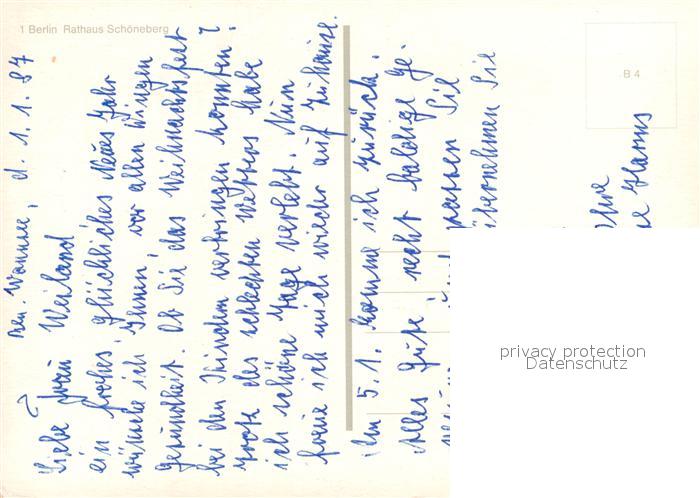 1 Berlin Rathaus Schöneberg
B 4
Wannsee, d. 1.1.87
Liebe Frau Weiland
ein frohes, glückliches Neues Jahr
wünsche ich Ihnen, vor allen Dingen
Gesundheit. Ob Sie das Weihnachtsfest
bei den Kindern verbringen konnten?
Trotz des schlechten Wetters habe
ich schöne Tage verlebt. Nun
freue ich mich wieder auf zuhause.
Am 5.1. komme ich zurück.
Alles Gute, recht baldige Ge-
Sie
übernehmen Sie
Ihre
Harms
privacy protection
Datenschutz